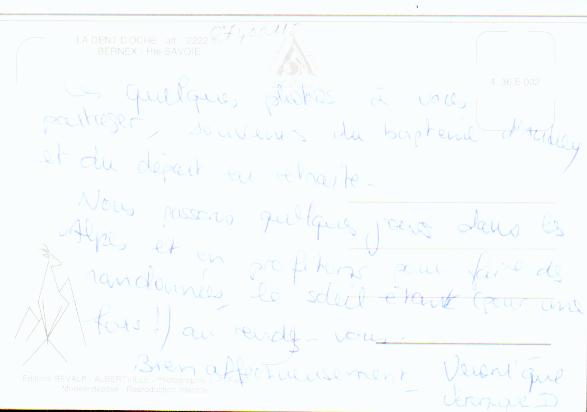 LA DENT D'OCHE - alt. 2222
BERNEX - Hte-SAVOIE
4.36 E 002
quelques photos à vous
partager, souvenirs du baptême
et du départ en retraite.
Nous passons quelques jours dans les
Alpes et en profitons pour faire des
randonnées, le soleil étant (pour une
fois !) au rendez-vous.
Bien affectueusement Véronique
Editions REVALP - ALBERTVILLE - Photographie
Modèle déposé - Reproduction interdite